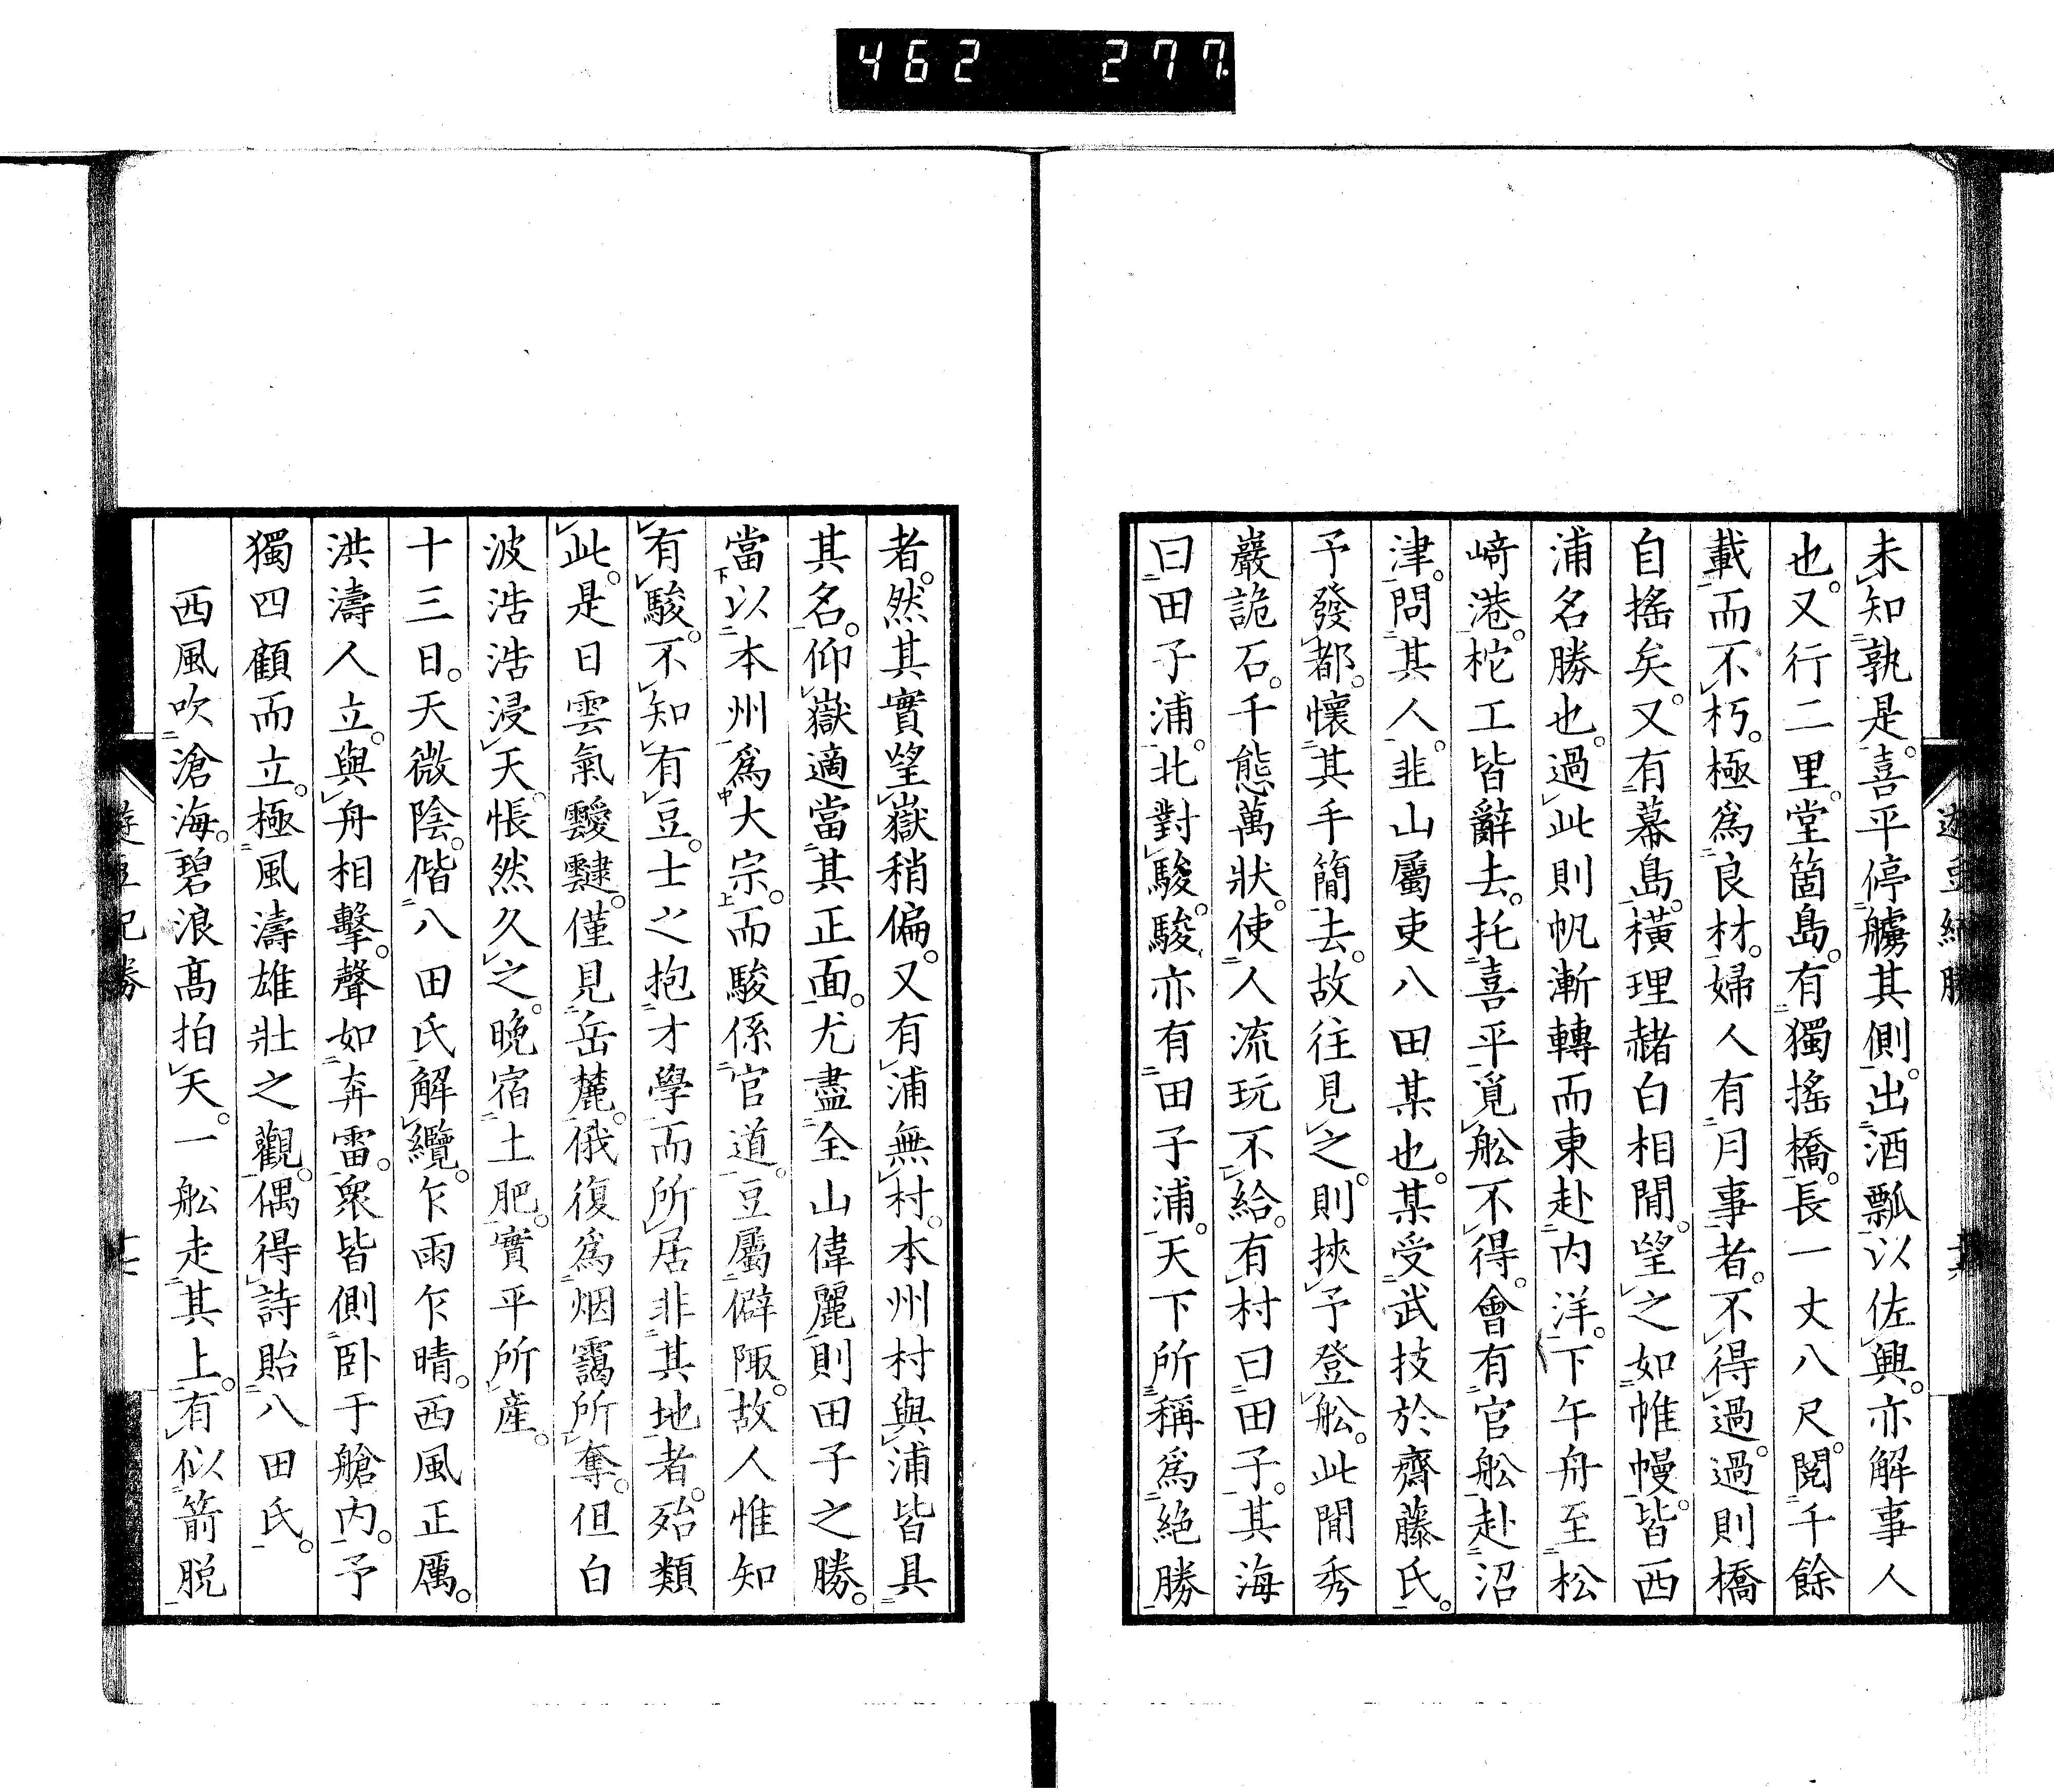 462 277
未知孰是。喜平停艫其側。出酒瓢以佐興。亦解事人
也。又行二里。堂箇島。有獨搖橋。長一丈八尺。閱千餘
載而不朽。極爲良材。婦人有月事者。不得過。過則橋
自搖矣。又有幕島。橫理赭白相間。望之如帷幔。皆西
浦名勝也。過此則帆漸轉而東赴內洋。下午舟至松
﨑港。柁工皆辭去。托喜平覓舩不得。會有官舩赴沼
津。問其人。韭山屬吏八田某也。某受武技於齋藤氏。
予發都。懷其手簡去。故往見之。則挾予登舩。此間秀
巖詭石。千態萬狀。使人流玩不給。有村曰田子。其海
曰田子浦。北對駿。駿亦有田子浦。天下所稱爲絕勝
者。然其實望嶽稍偏。又有浦無村。本州村與浦皆具
其名。仰嶽適當其正面。尤盡全山偉麗。則田子之勝。
當以本州爲大宗。而駿係官道。豆屬僻陬。故人惟知
有駿。不知有豆。士之抱才學而所居非其地者。殆類
此。是日雲氣靉靆。僅見岳麓。俄復爲烟靄所奪。但白
波浩浩浸天。悵然久之。晚宿土肥。實平所產。
十三日。天微陰。偕八田氏解纜。乍雨乍晴。西風正厲。
洪濤人立。與舟相擊。聲如奔雷。衆皆側臥于艙內。予
獨四顧而立。極風濤雄壯之觀。偶得詩貽八田氏。
西風吹滄海。碧浪高拍天。一舩走其上。有似箭脫
遊豆紀勝